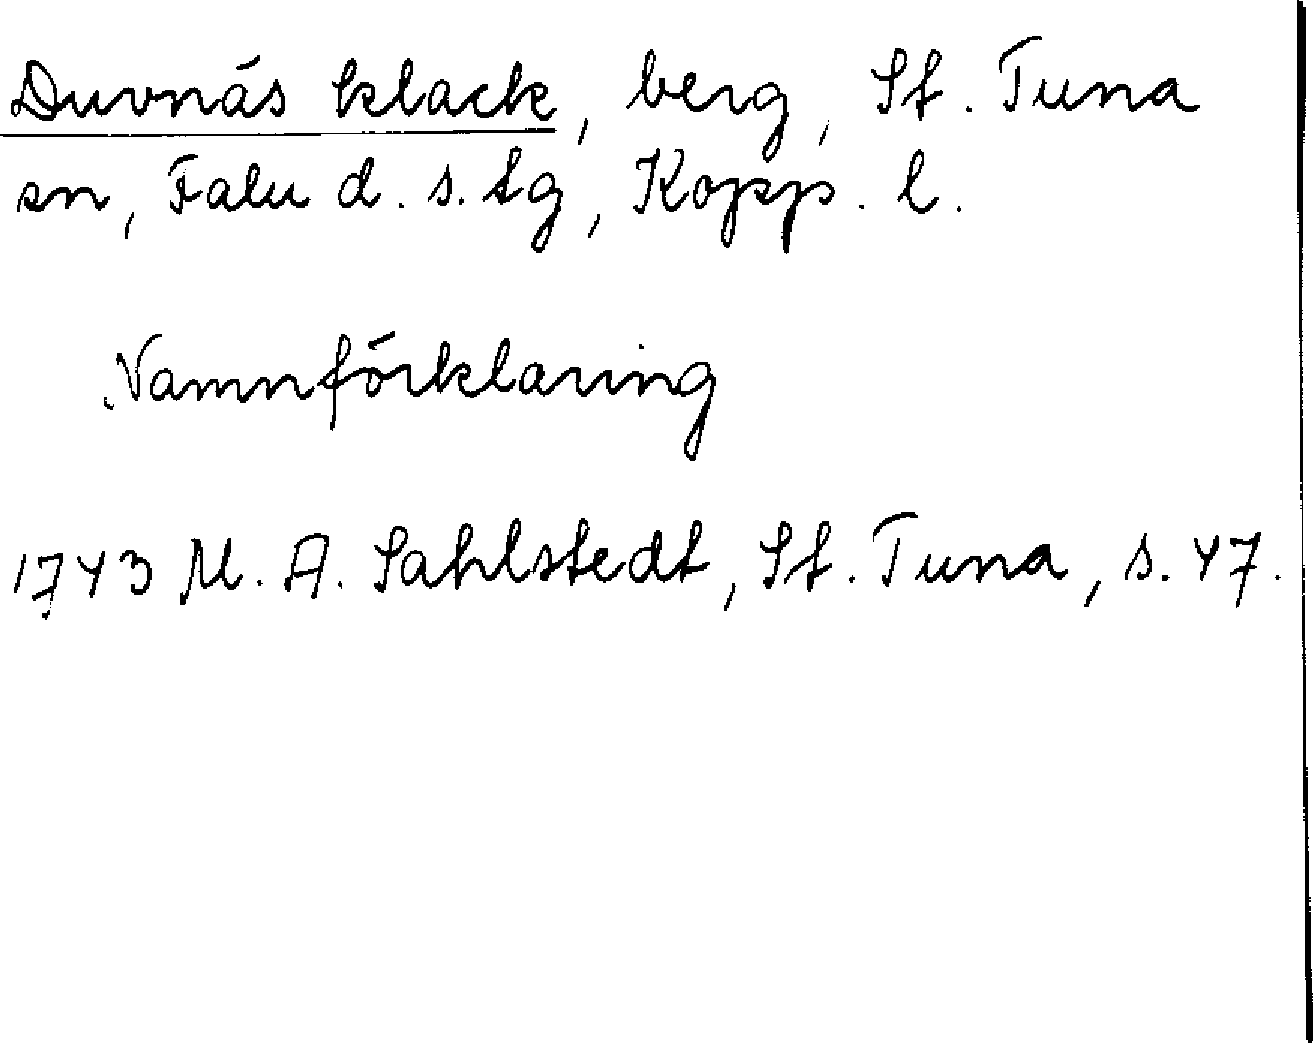 Duvnäs klack, berg, St. Tuna
sn, Falu d. s. tg, Kopp. l.
Namnförklaring
1743 M. A. Sahlstedt, St. Tuna, s. 47.